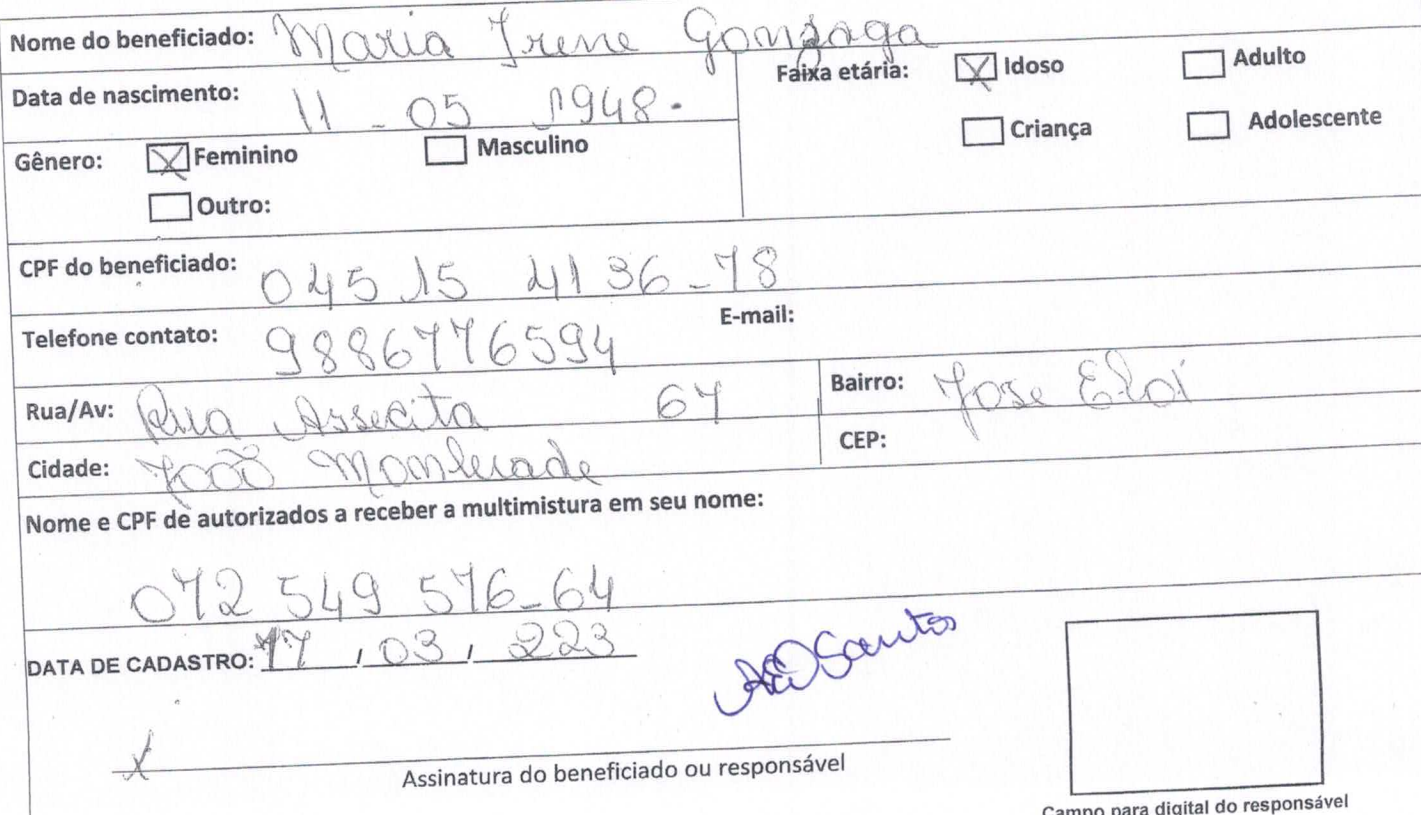 Nome do beneficiado: Maria Irene Gonzaga
Data de nascimento: 11 - 05 1948.
Faixa etária: X Idoso Adulto
Criança Adolescente
Gênero: X Feminino Masculino
Outro:
CPF do beneficiado: 045 15 4136-78
Telefone contato: 9886776594
E-mail:
Rua/Av: Rua Assecita 67
Bairro: Jose Eloi
Cidade: João Monlevade
CEP:
Nome e CPF de autorizados a receber a multimistura em seu nome:
072 549 576-64
DATA DE CADASTRO: 17 / 03 / 223
Santos
X
Assinatura do beneficiado ou responsável
Campo para digital do responsável